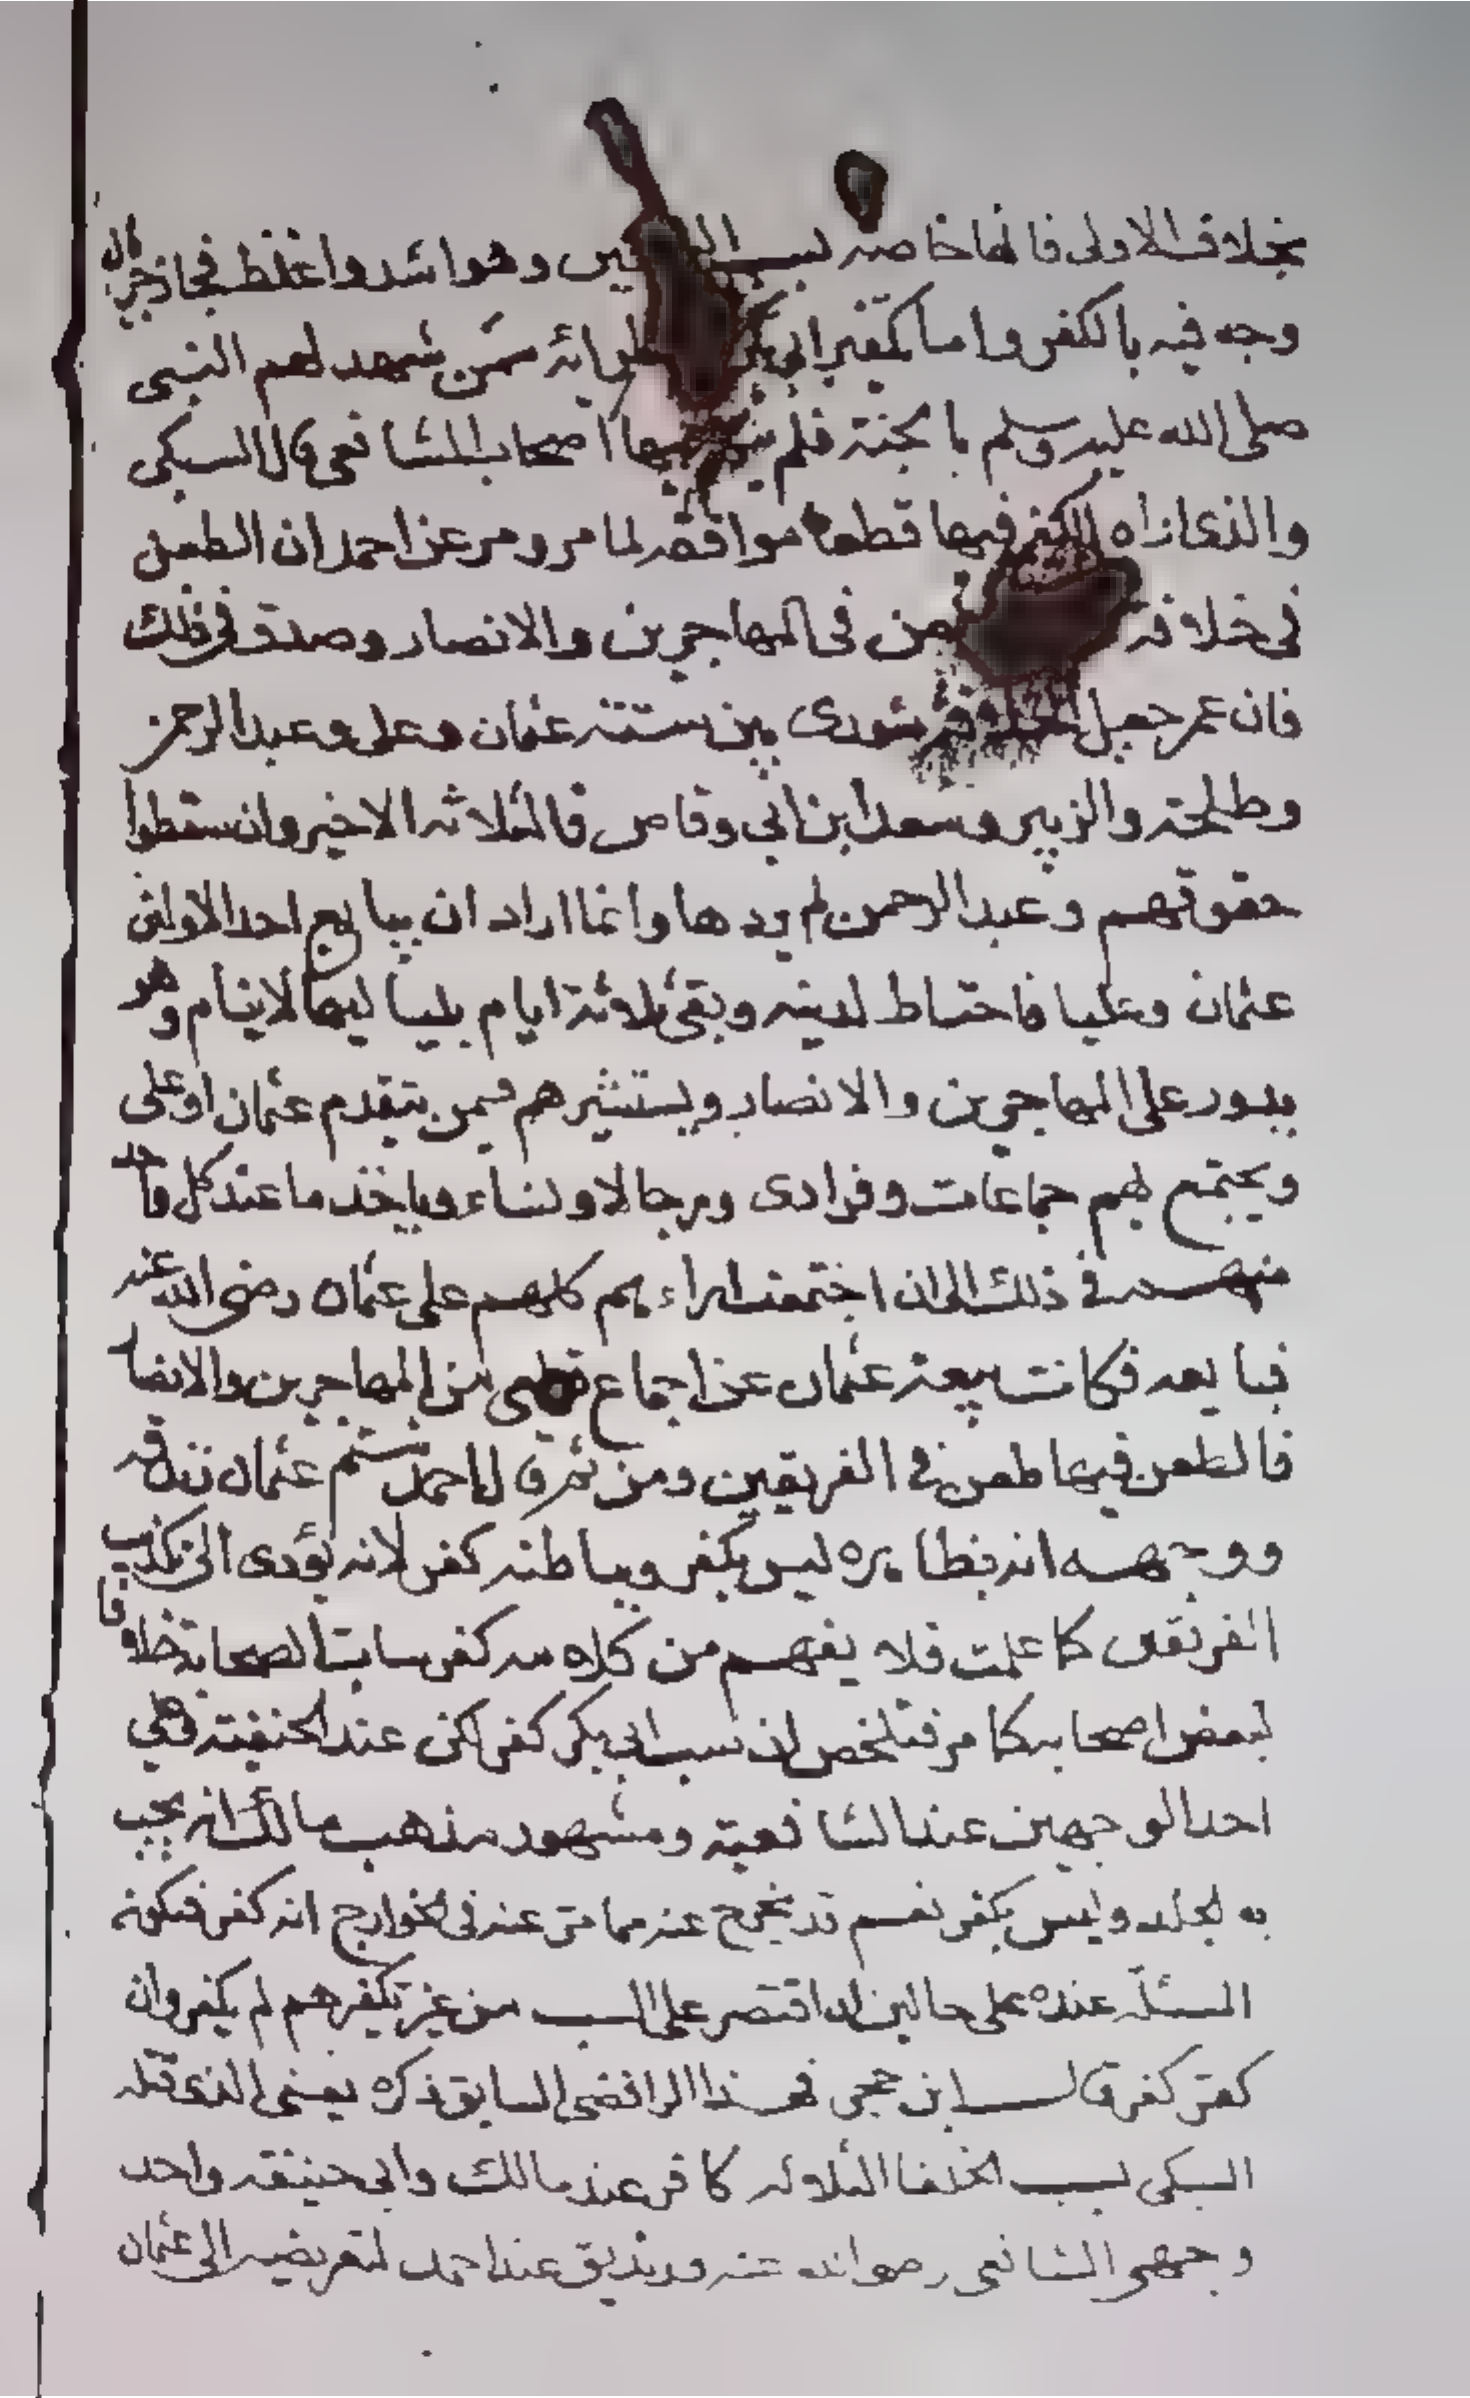 بخلاف الاولى فانها خاصة بسب وهو اشد واغلظ فجاز جريان
وجه فيه بالكفر واما تكفير ابي بكر ونظرائه ممن شهد لهم النبي
صلى الله عليه وسلم بالجنة فلم فيها اصحاب الشافعي قال السبكي
والذي اراه الكفر فيها قطعا موافقة لما مر ومر عن احمد ان الطعن
في خلافة طعن في المهاجرين والانصار وصدق في ذلك
فان عمر جعل الخلافة شورى بين ستة عثمان وعلي وعبد الرحمن
وطلحة والزبير وسعد ابن ابي وقاص فالثلاثة الاخيرون سقطوا
حقوقهم وعبد الرحمن لم يردها وانما اراد ان يبايع احد الاولين
عثمان وعليا فاحتاط لدينه وبقي ثلاثة ايام بلياليها لا ينام وهو
يدور على المهاجرين والانصار ويستشيرهم فيمن يتقدم عثمان او علي
ويجتمع بهم جماعات وفرادى ورجالا ونساء وياخذ ما عند كل واحد
منهم في ذلك الى ان اجتمعت اراءهم كلهم على عثمان رضي الله عنه
فبايعه فكانت بيعة عثمان عن اجماع قطعي من المهاجرين والانصار
فالطعن فيها طعن في الفريقين ومن ثم قال احمد شتم عثمان زندقة
ووجهه انه بظاهره ليس بكفر وبباطنه كفر لانه يؤدي الى تكذيب
الفريقين كما علمت فلا يفهم من كلامه كفر ساب الصحابة خلافا
لبعض اصحابه كما مر فتلخص ان سب ابي بكر كفر عند الحنفية وهي
احد الوجهين عند الشافعية ومشهور مذهب مالك انه يجب
به الجلد وليس بكفر نعم قد يخرج عنه مما مر عنه في الخوارج انه كفر فتكون
المسئلة عنده على حالين ان اقتصر على السب من غير تكفيرهم لم يكفر وان
كفر كفر قال ابن حجر فهذا الرافضي السابق ذكره يعني الذي قتله
السبكي بسب الخلفا الثلاثه كافر عند مالك وابي حنيفه واحد
وجهي الشافعي رضي الله عنه وزنديق عند احمد لتعريضه الى عثمان